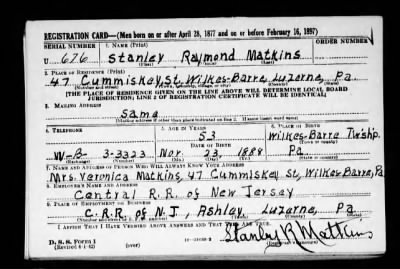 REGISTRATION CARD—(Men born on or after April 28, 1877 and on or before February 16, 1897)
SERIAL NUMBER 1. NAME (Print) ORDER NUMBER
U 676 Stanley Raymond Matkins
(First) (Middle) (Last)
2. PLACE OF RESIDENCE (Print)
47 Cummiskey, St. Wilkes-Barre, Luzerne, Pa.
(Number and street) (Town, township, village, or city) (County) (State)
[THE PLACE OF RESIDENCE GIVEN ON THE LINE ABOVE WILL DETERMINE LOCAL BOARD
JURISDICTION; LINE 2 OF REGISTRATION CERTIFICATE WILL BE IDENTICAL]
3. MAILING ADDRESS
Same
[Mailing address if other than place indicated on line 2. If same insert word same]
4. TELEPHONE 5. AGE IN YEARS 6. PLACE OF BIRTH
53 Wilkes-Barre Twshp.
DATE OF BIRTH (Town or county)
W-B- 3-3323 Nov. 23 1888 Pa.
(Exchange) (Number) (Mo.) (Day) (Yr.) (State or country)
7. NAME AND ADDRESS OF PERSON WHO WILL ALWAYS KNOW YOUR ADDRESS
Mrs. Veronica Matkins, 47 Cummiskey St, Wilkes-Barre, Pa
8. EMPLOYER'S NAME AND ADDRESS
Central R.R. of New Jersey
9. PLACE OF EMPLOYMENT OR BUSINESS
C.R.R. of N.J., Ashley Luzerne, Pa.
(Number and street or R. F. D. number) (Town) (County) (State)
I AFFIRM THAT I HAVE VERIFIED ABOVE ANSWERS AND THAT THEY ARE TRUE.
D. S. S. Form 1 Stanley R Matkins
(Revised 4-1-42) (Registrant's signature)